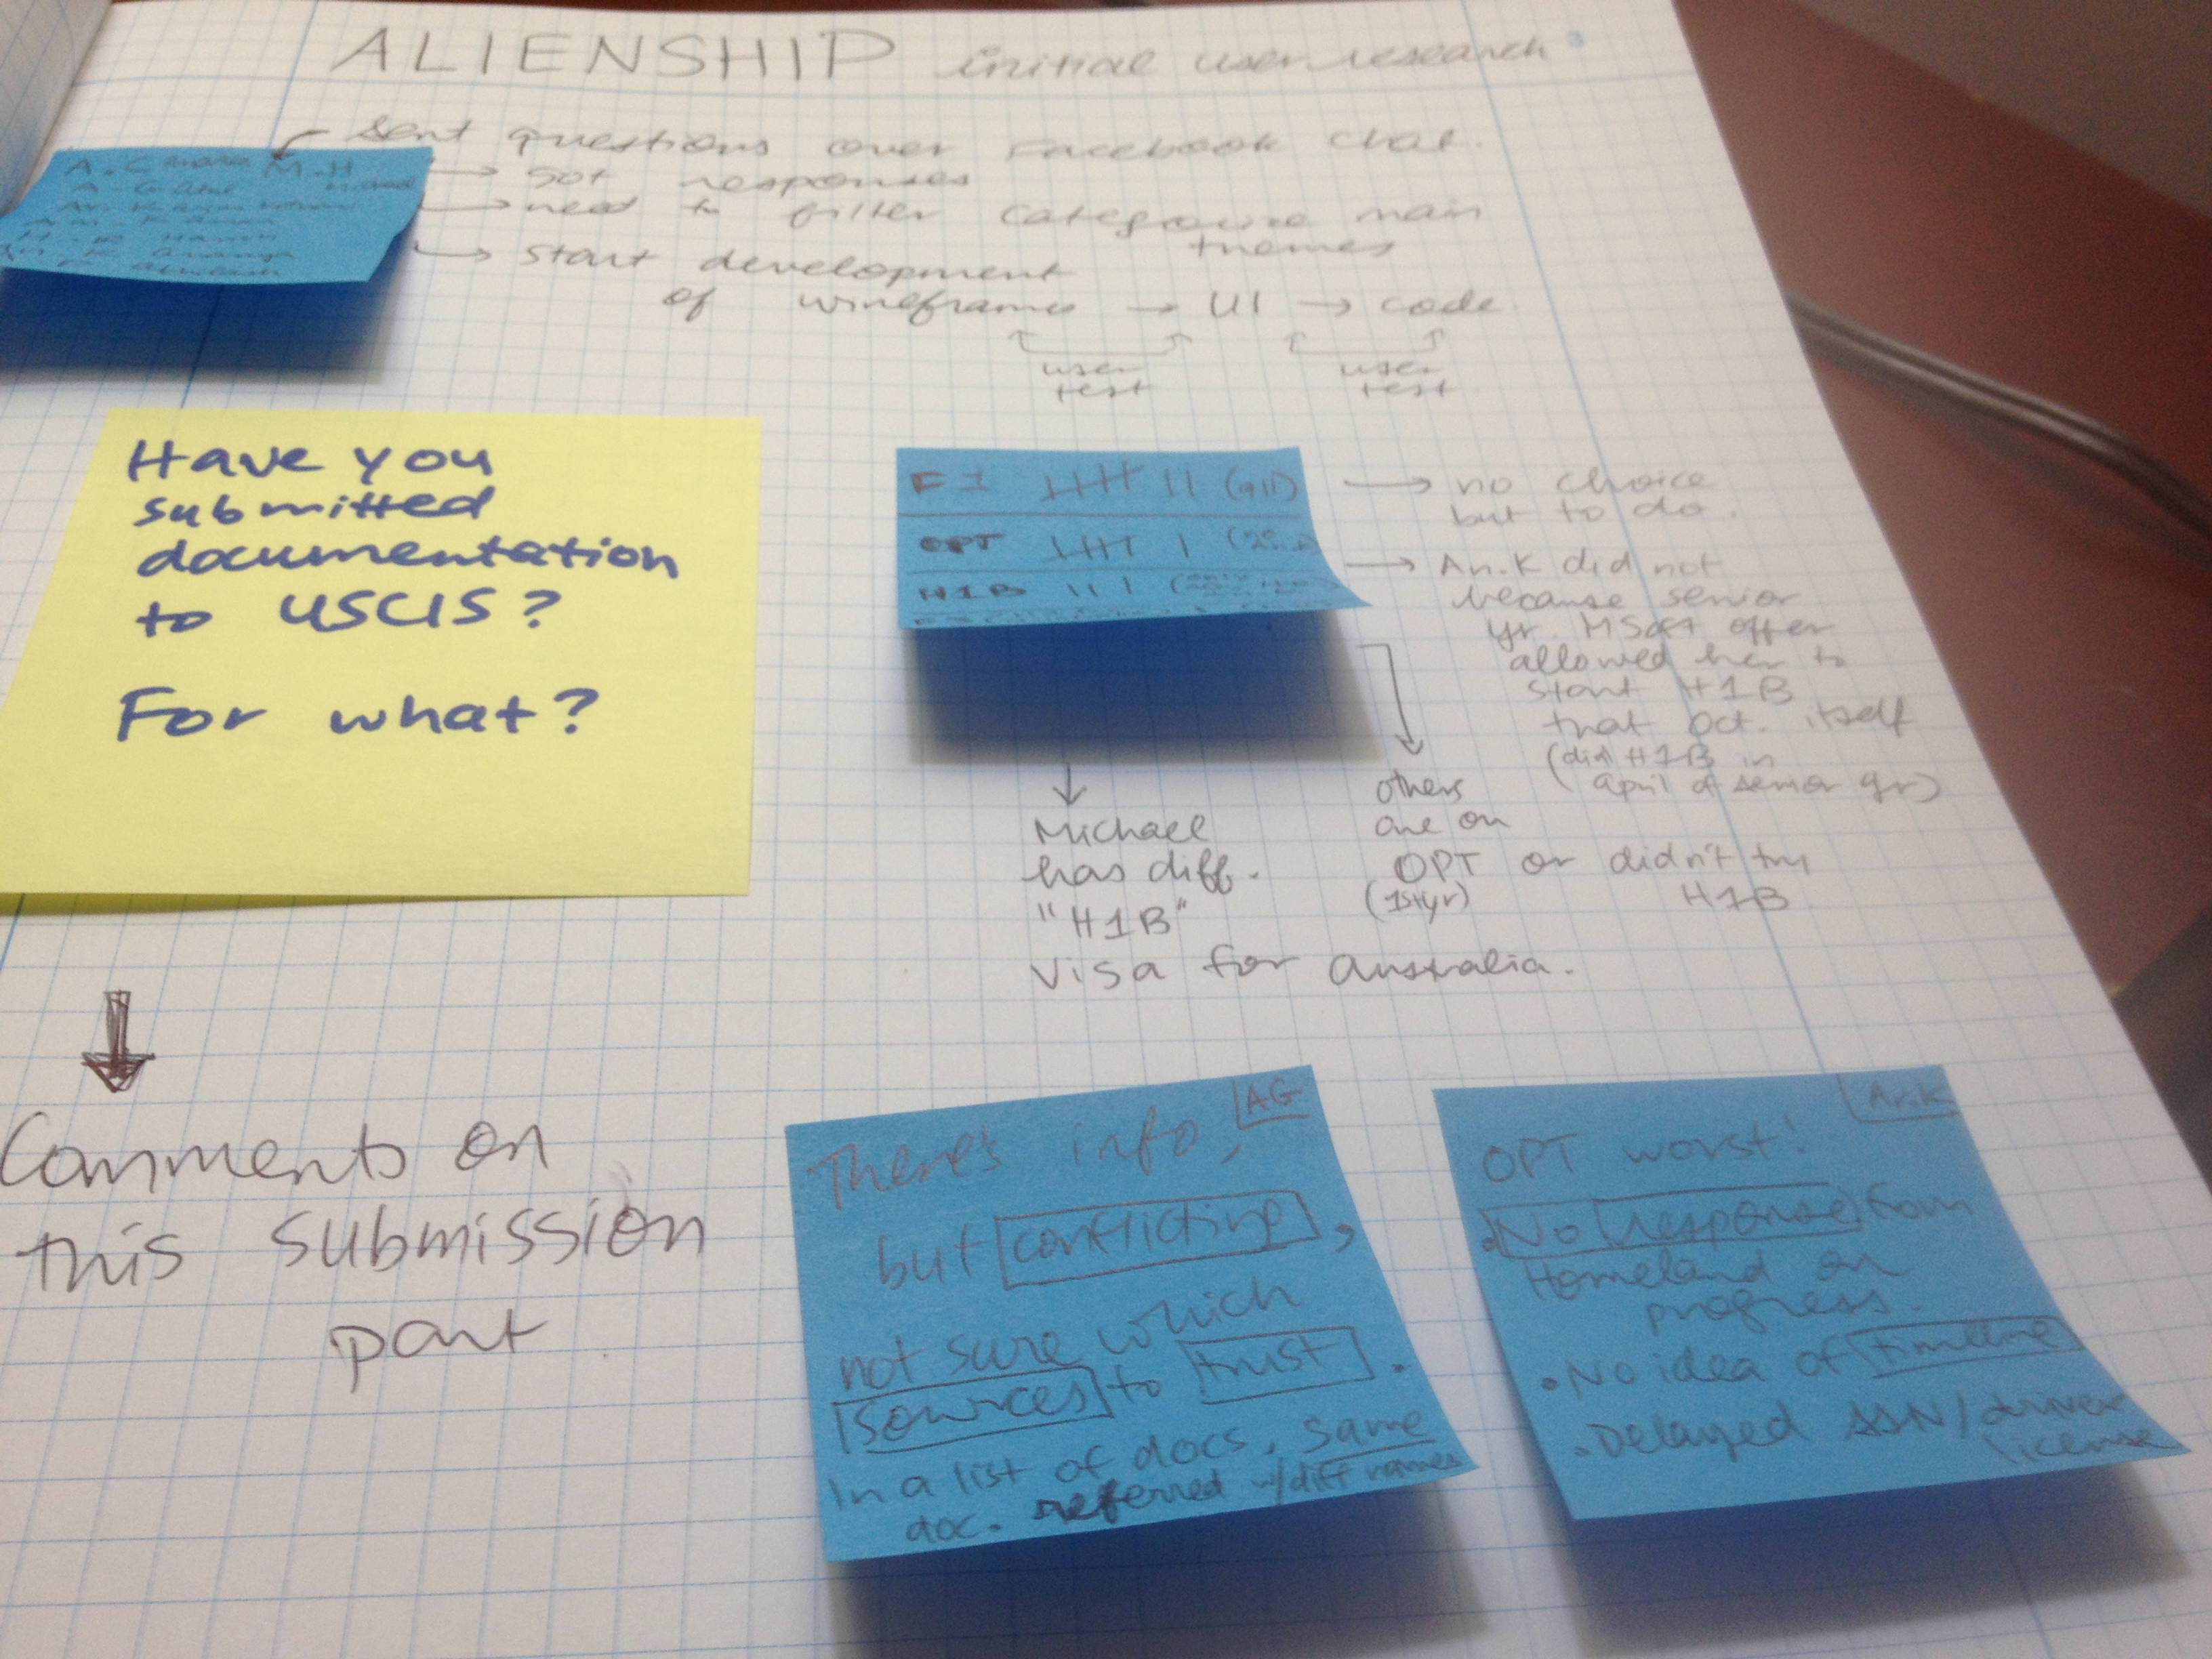 ALIENSHIP initial user research
sent questions over Facebook chat.
A.C M.H
→ got responses
→ need to filter categorize main
themes
→ start development
of wireframes → UI → code
user
test
user
test
Have you
submitted
documentation
to USCIS?
For what?
F1 (all)
OPT
H1B
→ no choice
but to do.
→ An.K did not
because senior
yr. MSoft offer
allowed her to
start H1B
that Oct. itself
(did H1B in
April of senior yr)
others
are on
OPT or didn't try
(1st yr) H1B
Michael
has diff.
"H1B"
Visa for Australia.
Comments on
this submission
part
AG
There's info,
but conflicting,
not sure which
sources to trust.
In a list of docs, same
doc. referred w/diff names
An.K
OPT worst!
• No response from
Homeland on
progress.
• No idea of timeline
• Delayed SSN/driver
license